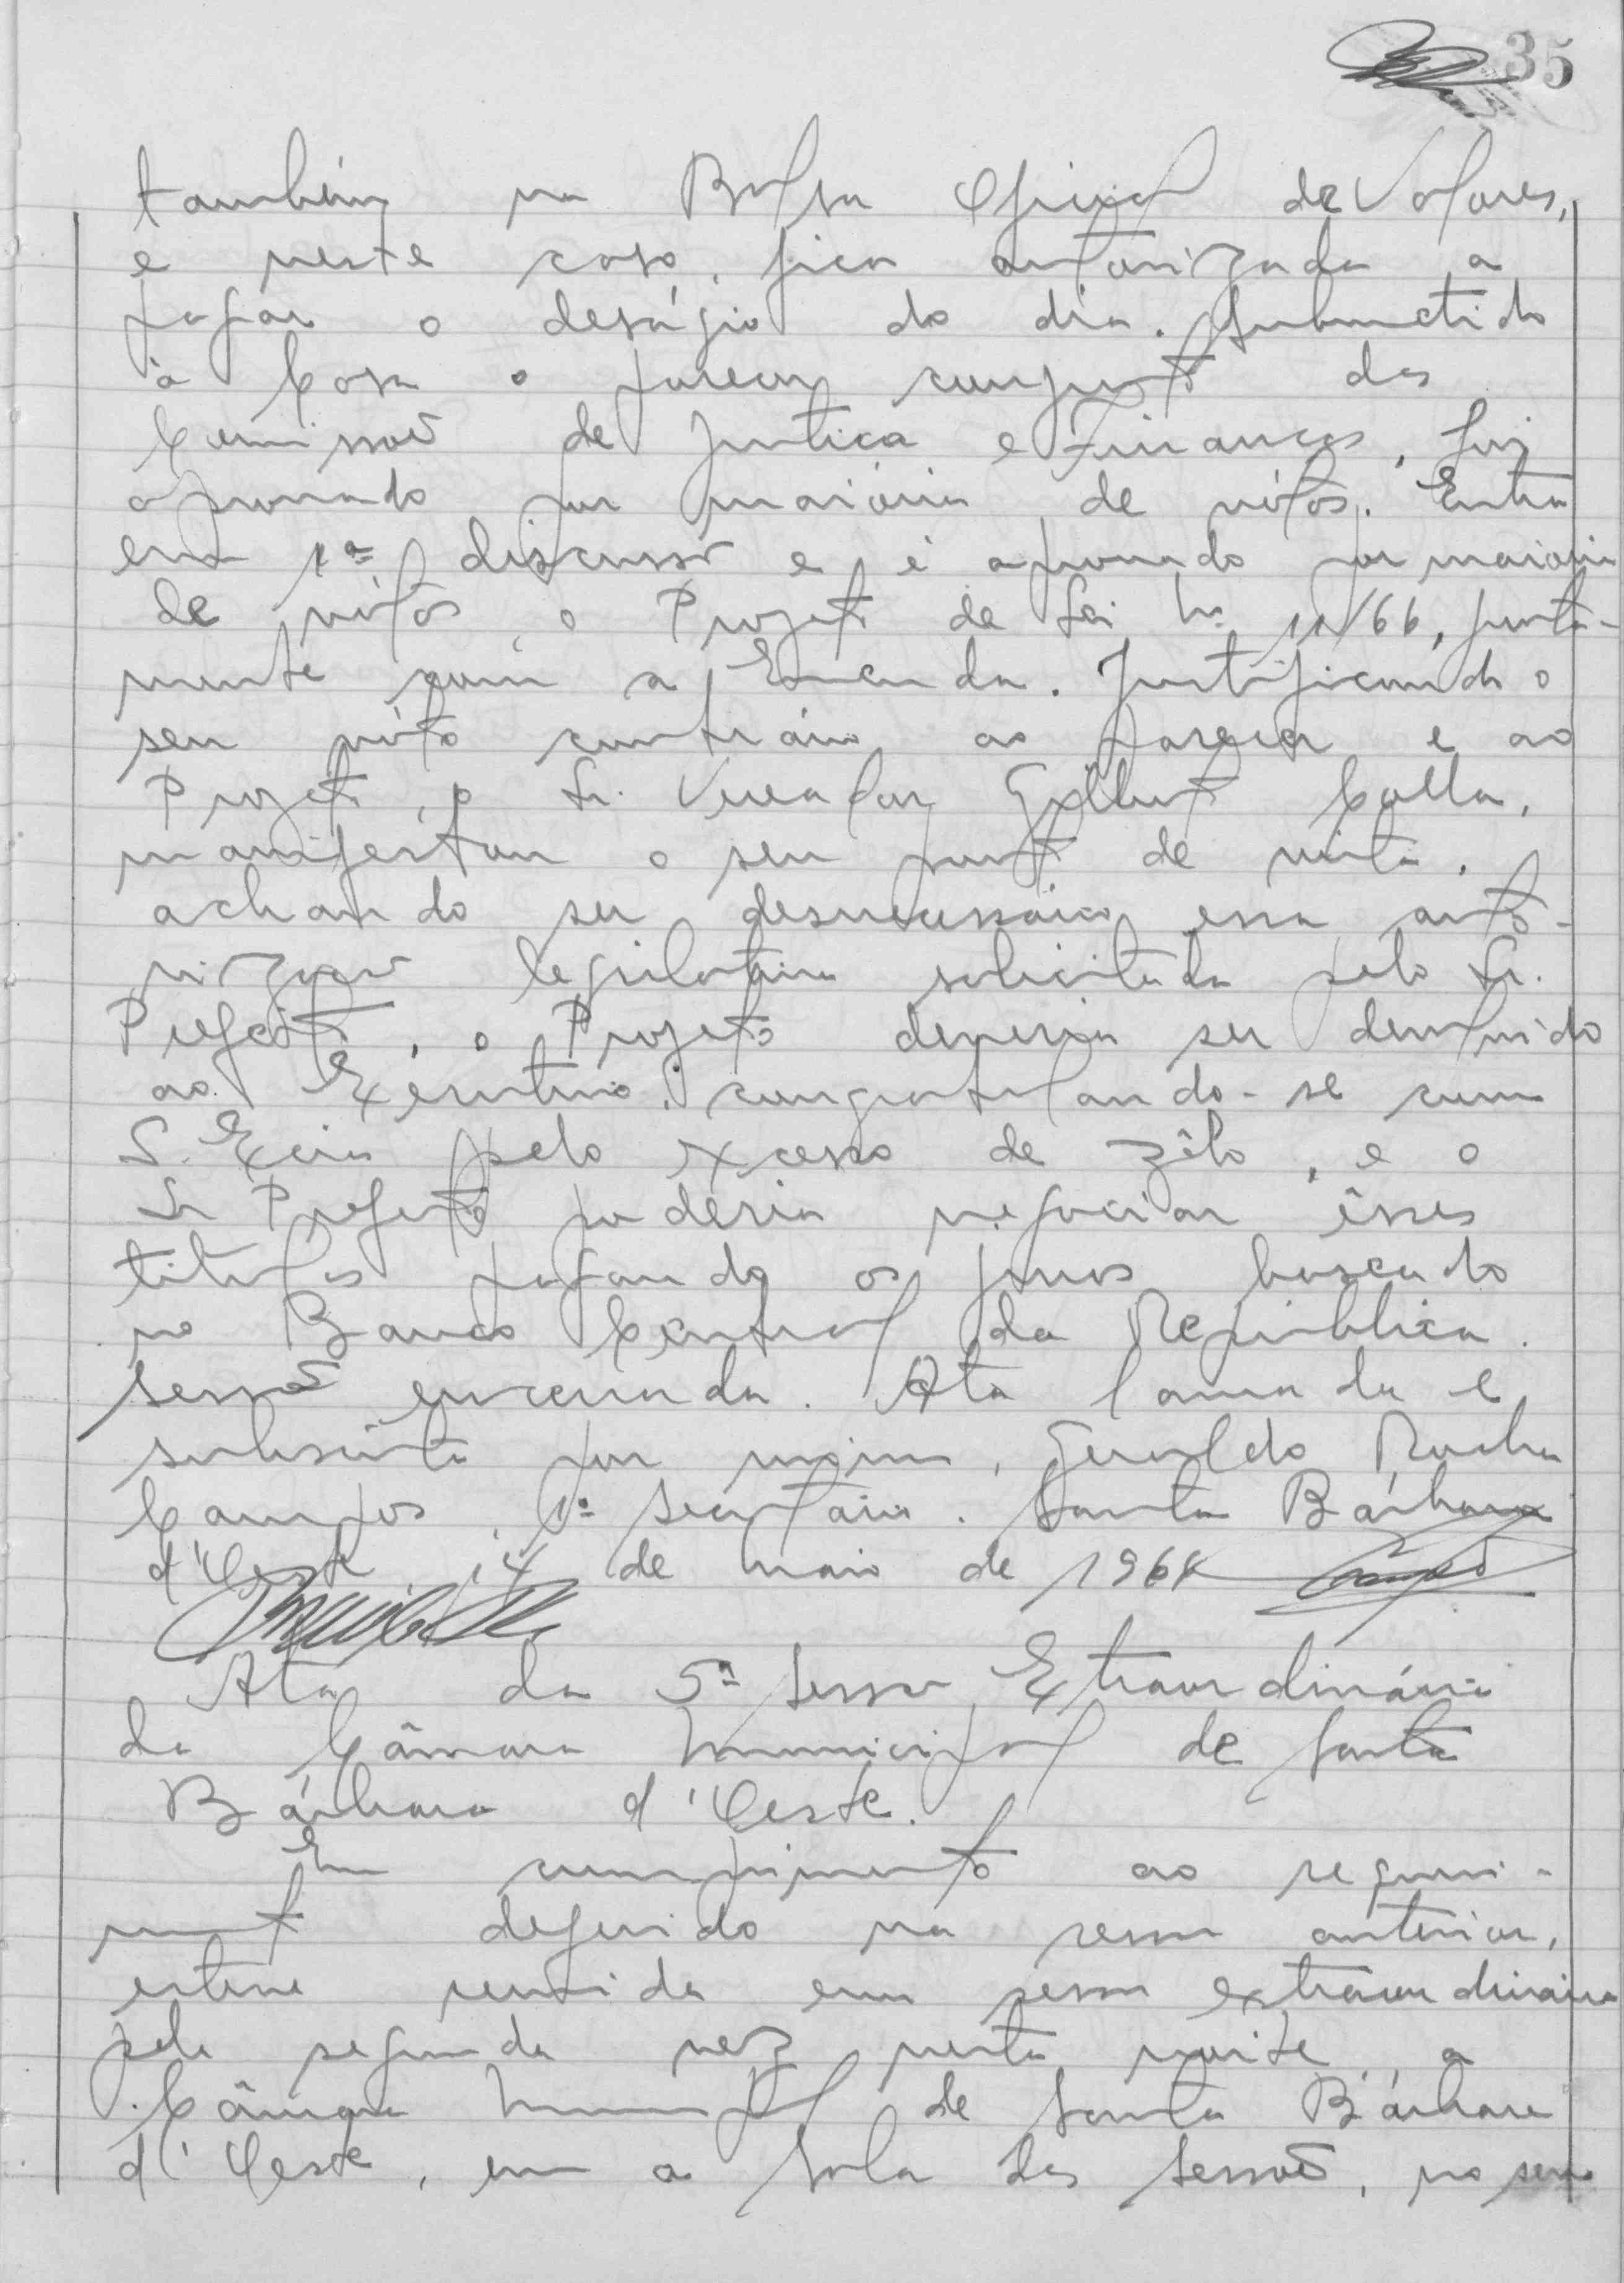 35
também na Bolsa Oficial de Valores,
e neste caso, fica autorizada a
pagar o deságio do dia. Submetido
à Casa o parecer conjunto das
Comissões de Justiça e Finanças, foi
aprovado por maioria de vótos. Entra
em 1ª discussão e é aprovado por maioria
de vótos, o Projeto de Lei nº 11/66, junta-
mente com a Emenda. Justificando o
seu vóto contrário ao parecer e ao
Projeto, o Sr. Vereador Galla,
manifestou o seu ponto de vista,
achando ser desnecessário essa auto-
rização legislativa solicitada pelo Sr.
Prefeito, o Projeto deveria ser devolvido
ao Executivo, congratulando-se com
S. Excia pelo excesso de zêlo, e o
Sr Prefeito poderia negociar êsses
titulos pagando os juros baseado
no Banco Central da República.
Sessão encerrada. Ata lavrada e
subscrita por mim, Geraldo Rocha
Campos, 1º secretário. Santa Bárbara
d'Oeste, 14 de maio de 1966
Ata da 5ª Sessão Extraordinária
da Câmara Municipal de Santa
Bárbara d'Oeste.
Em cumprimento ao requeri-
mento deferido na sessão anterior,
esteve reunida em sessão extraordinária
pela segunda vez nesta noite, a
Câmara Municipal de Santa Bárbara
d'Oeste, em a Sala das Sessões, no seu